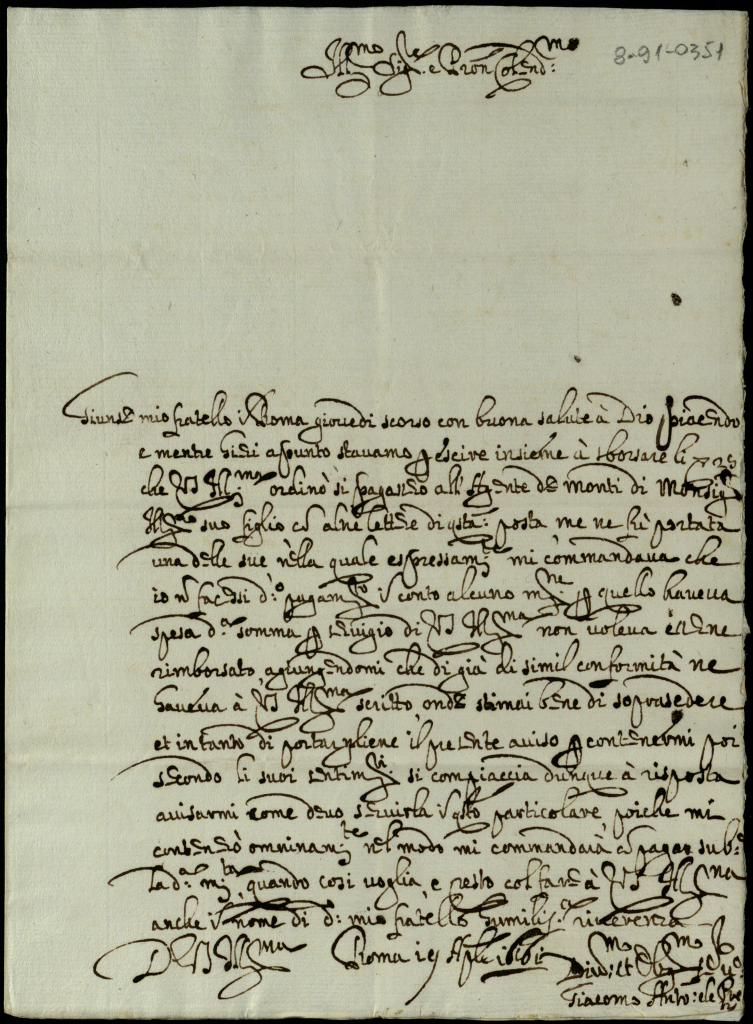 8-91-0351
Ill.mo Sig.re e Pron Colend.mo
Giunse mio fratello in Roma giovedì scorso con buona salute à Dio piacendo
e mentre hieri apunto stavamo p escire insieme à sborsare li 25
che VS Ill.ma ordinò si pagassero all'Agente de Monti di Monsig.r
Ill.mo suo figlio con altre lettere di qsta posta me ne fù portata
una delle sue nella quale espressam.te mi commandava che
io n facessi d.o pagam.to in conto alcuno p quello haveva
spesa d.a somma p servigio di VS Ill.ma non voleva esserne
rimborsato, agiungendomi che di già di simil conformità ne
haveva à VS Ill.ma scritto onde stimai bene di soprasedere
et intanto di portargliene il presente aviso p contenermi poi
secondo li suoi sentim.ti si compiaccia dunque à risposta
avisarmi come devo servirla in qsto particolare poiche mi
contenerò omninam.te nel modo mi commandarà con pagar sub.o
la d.a quando così voglia, e resto col fare à VS Ill.ma
anche in nome di d.o mio fratello humiliss.a riverenza
D VS Ill.ma Roma 19 Aple
Giacomo Ant.o